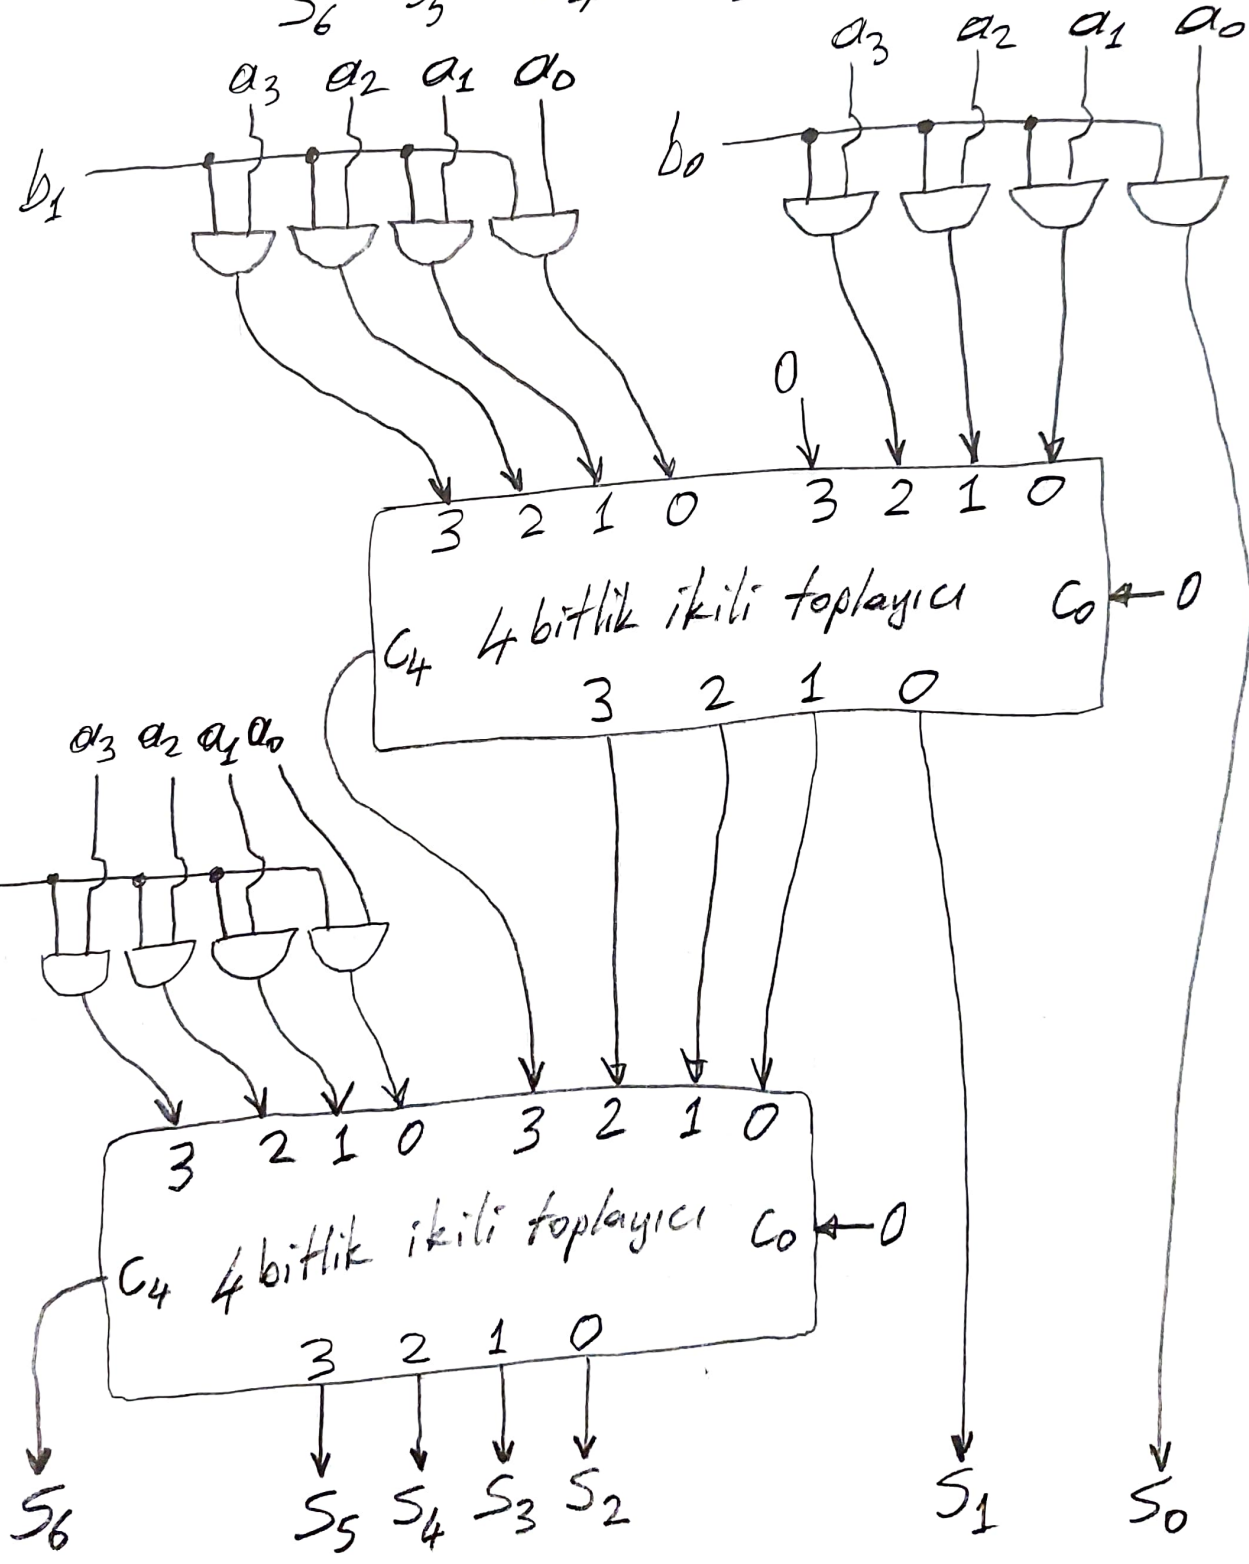 S6 S5
a3 a2 a1 a0
a3 a2 a1 a0
b1
b0
0
3 2 1 0 3 2 1 0
4 bitlik ikili toplayıcı
C0 0
C4
3 2 1 0
a3 a2 a1 a0
3 2 1 0 3 2 1 0
4 bitlik ikili toplayıcı
C0 0
C4
3 2 1 0
S6 S5 S4 S3 S2 S1 S0